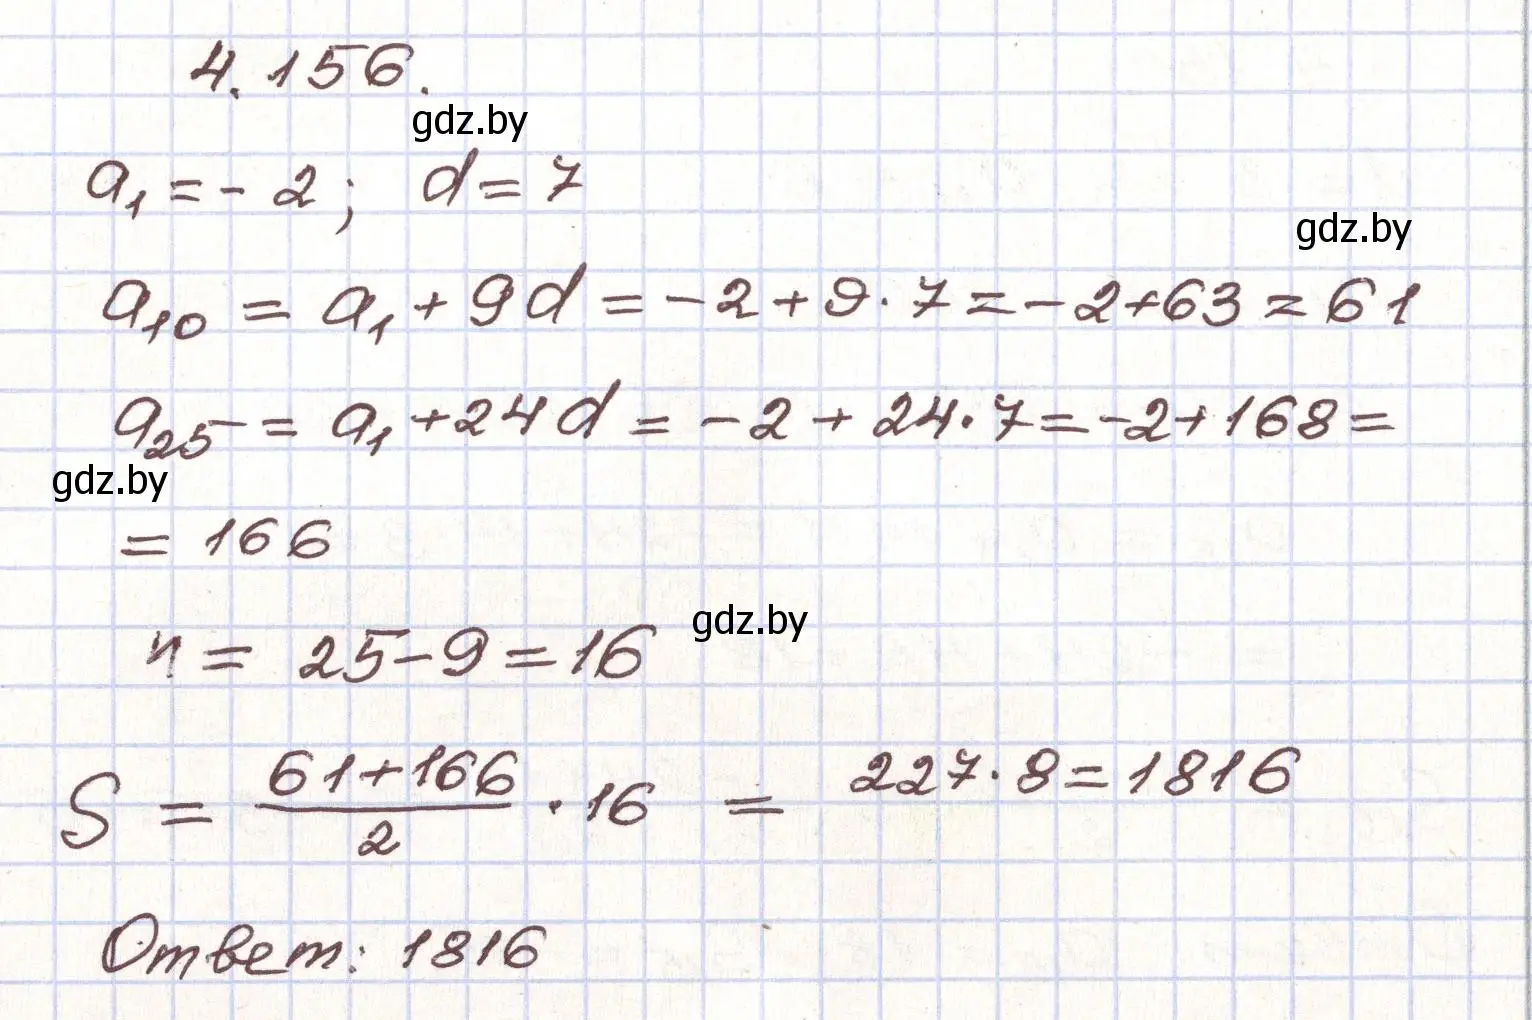 4.156.
gdz.by
a₁ = - 2 ; d = 7
gdz.by
a₁₀ = a₁ + 9d = -2 + 9 · 7 = -2 + 63 = 61
a₂₅ = a₁ + 24d = -2 + 24 · 7 = -2 + 168 =
gdz.by
= 166
gdz.by
n = 25 - 9 = 16
S = \frac{61 + 166}{2} · 16 = 227 · 8 = 1816
Ответ: 1816